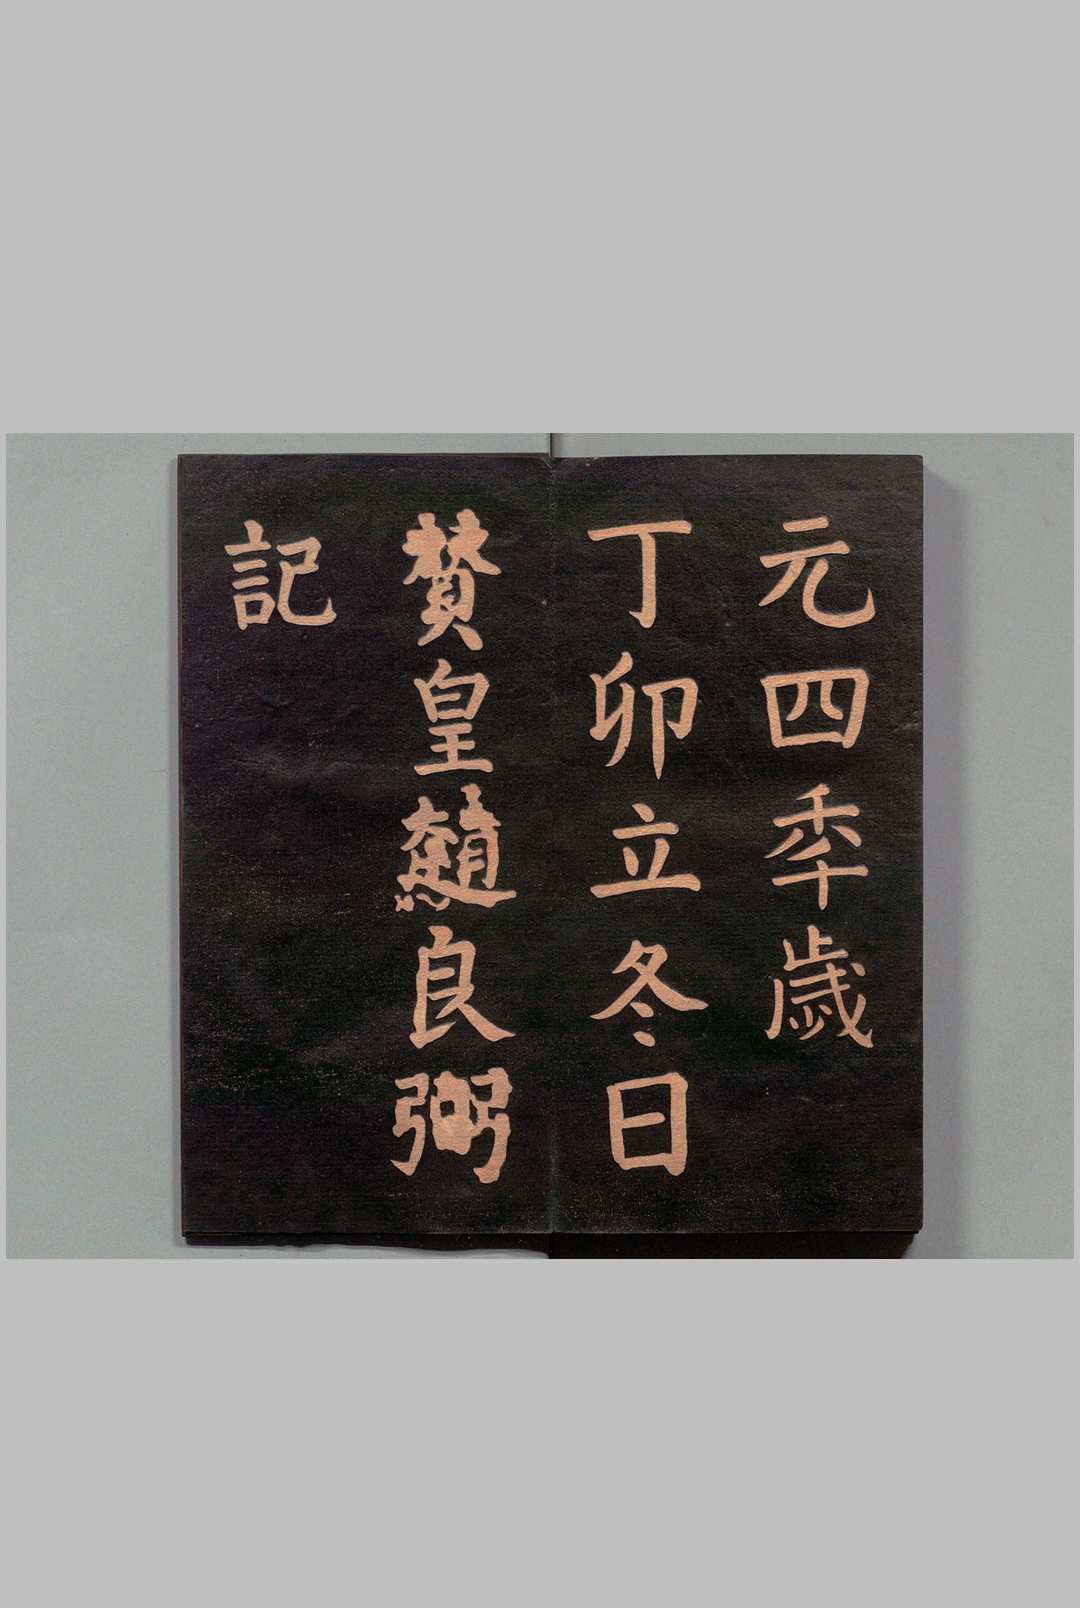 元四秊歲
丁卯立冬日
賛皇趙良弼
記